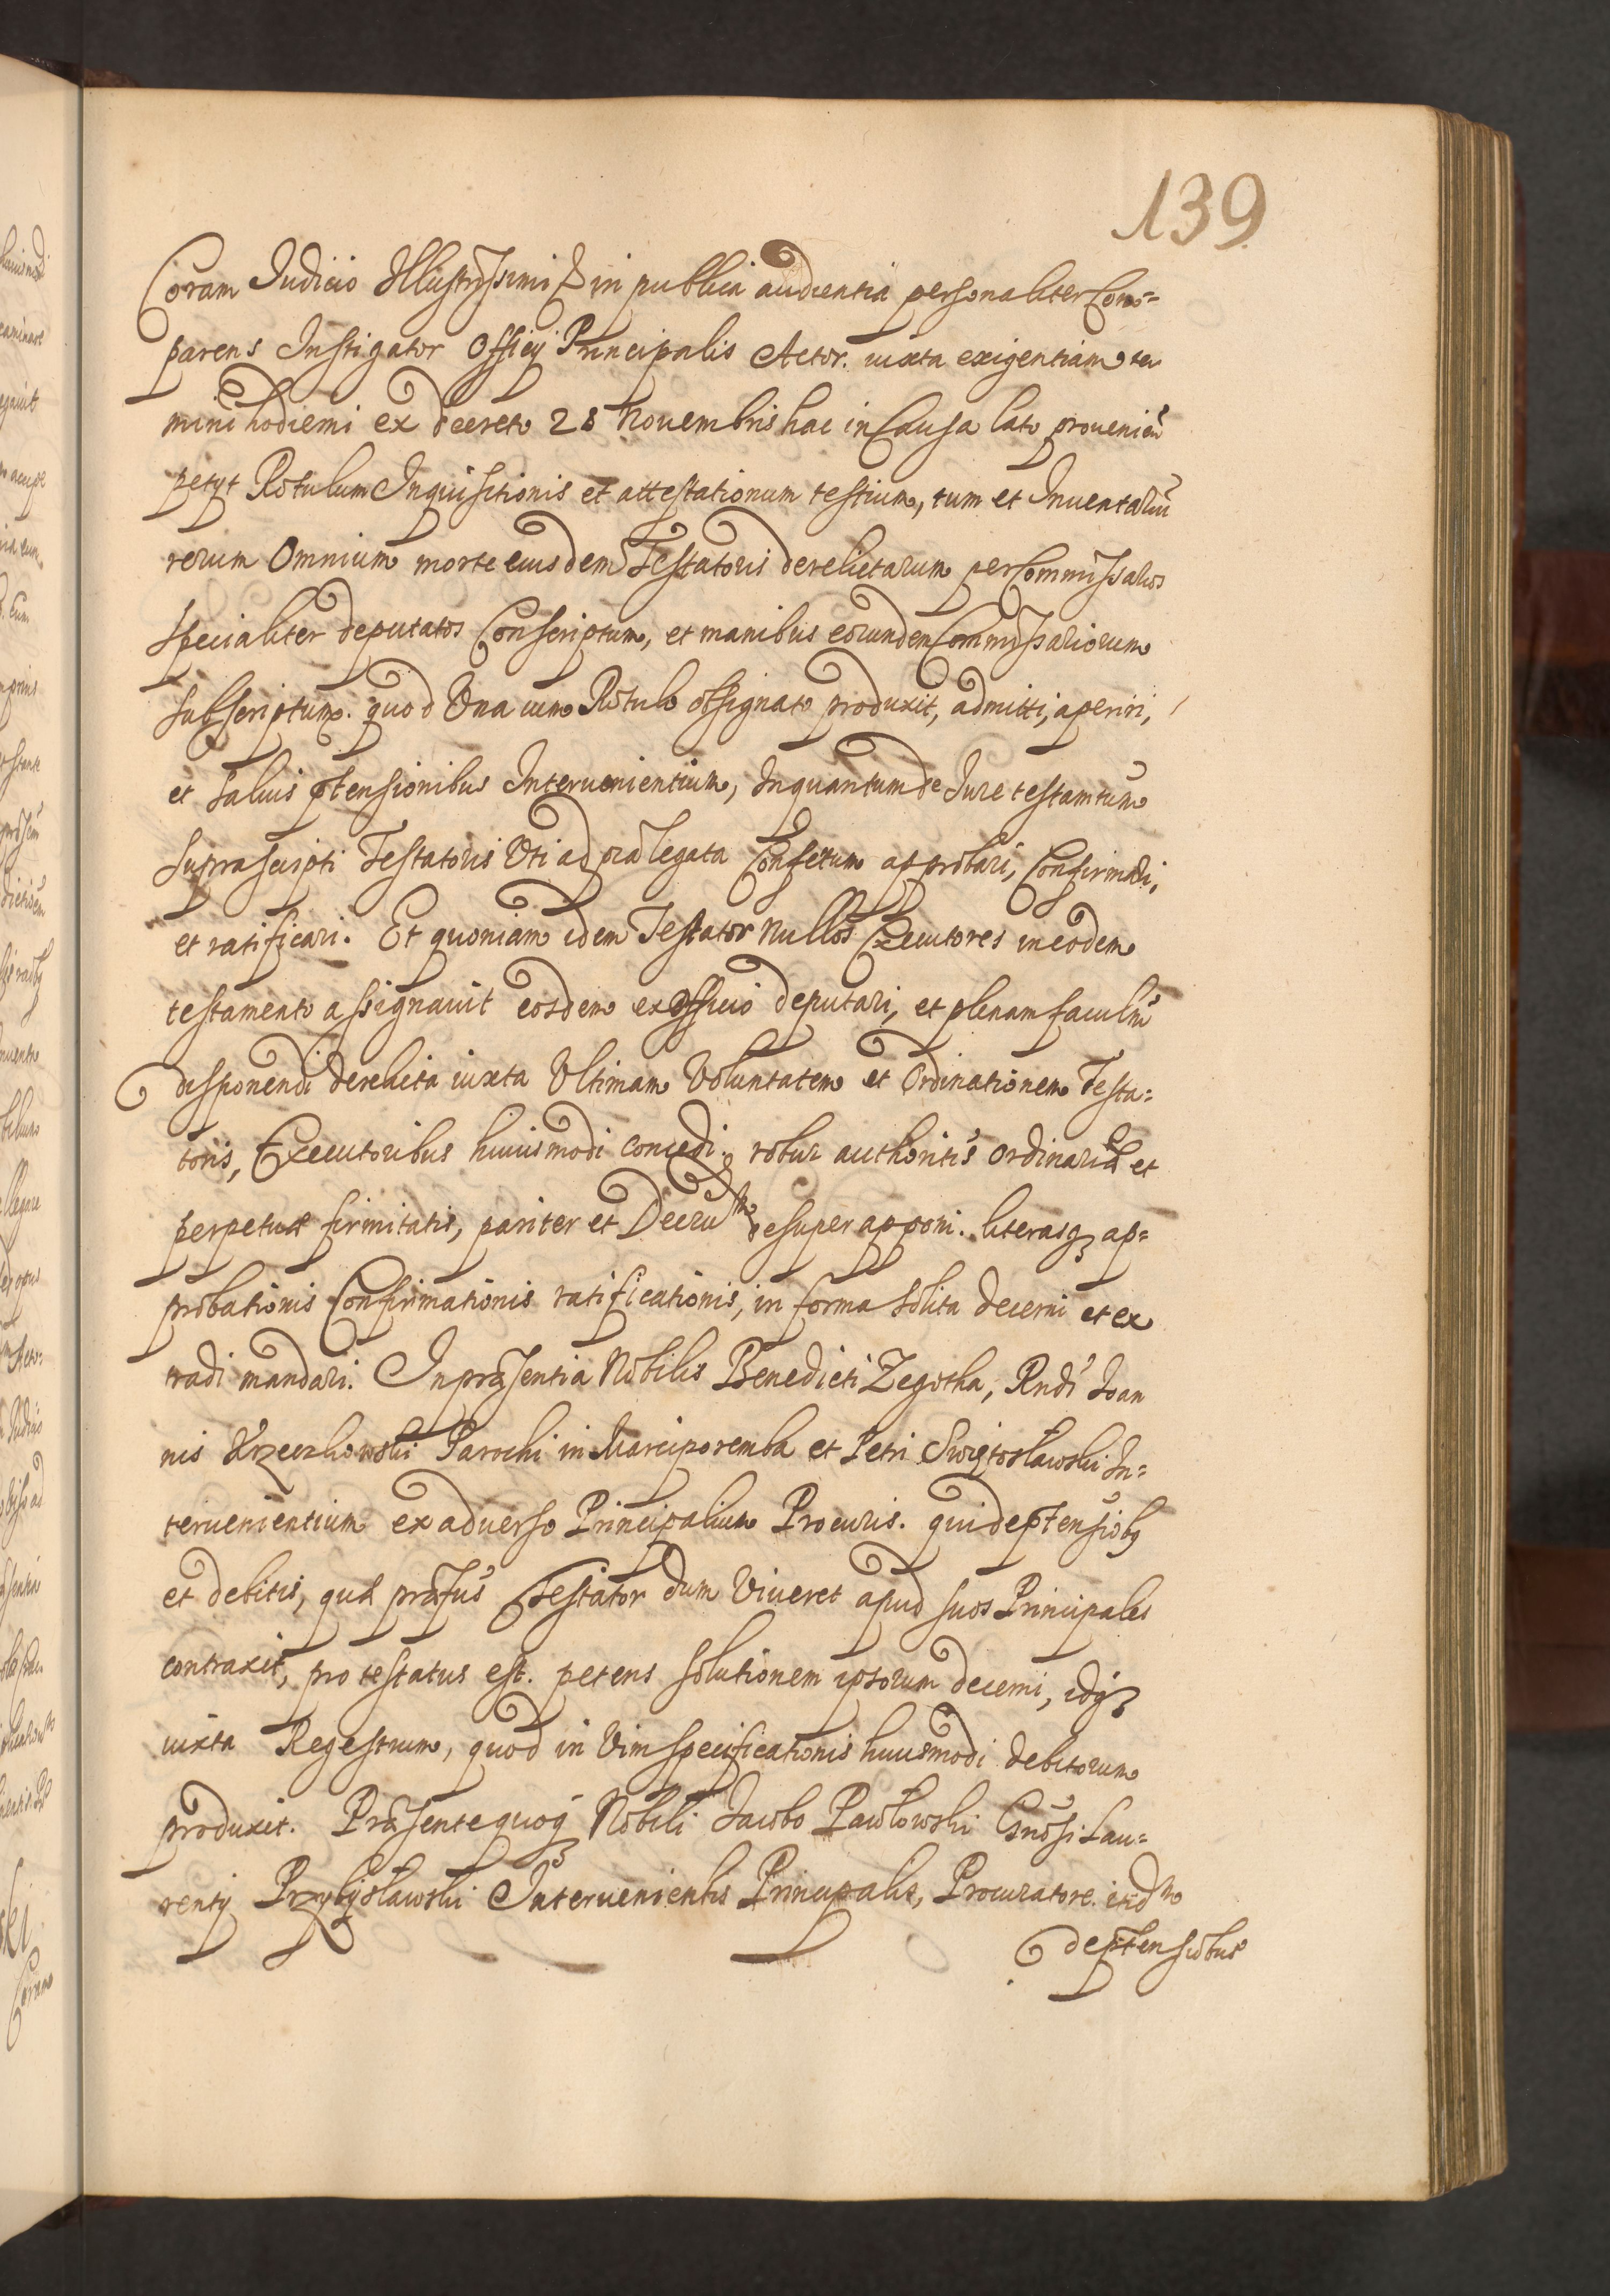 139
Coram Judicio Illustrissimi & in publica audientia personaliter Com=
parens Instigator Officij Principalis Actor. iuxta exigentiam ter
mini hodierni ex decreto 28 Novembris hac in Causa lato provenien
petyt Rotulum Inquisitionis et attestationum testium, tum et Inventariũ
rerum Omnium morte eiusdem Testatoris derelictarum per Commissarios
specialiter deputatos Conscriptum, et manibus eorundem Commissariorum
subscriptum. quod Una cum Rotulo obsignato produxit, admitti, aperiri,
et salvis ptensionibus Intervenientium, Inquantum de Jure testamtum
suprascripti Testatoris Uti ad pia legata Confectum approbari, Confirmari,
et ratificari. Et quoniam idem Testator nullos Executores in eodem
testamento assignavit eosdem ex officio deputari, et plenam facultm
disponendi derelicta iuxta Ultimam Voluntatem et Ordinationem Testa=
toris, Executoribus huiusmodi concedi. robur authoritis ordinariæ et
perpetuæ firmitatis, pariter et Decrum desuper apponi. literasq ap=
probationis Confirmationis ratificationis, in forma solita decerni et ex
tradi mandari. In præsentia Nobilis Benedicti Zegotha, Rndi Joan
nis Krzeczkowski Parochi in Marciporemba et Petri Swiętosławski In=
tervenientium ex adverso Principalium Procuris. qui de ptensiobq
et debitis, quæ præfus Testator dum Viveret apud suos Principales
contraxit, protestatus est. petens solutionem ipsorum decerni, idq
iuxta Regestrum, quod in Vim specificationis huiusmodi debitorum
produxit. Præsente quoq Nobili Jacobo Pawłowski Gnosi Lau=
rentij Przybysławski Intervenientis Principalis, Procuratore. itidm
de ptensiobus